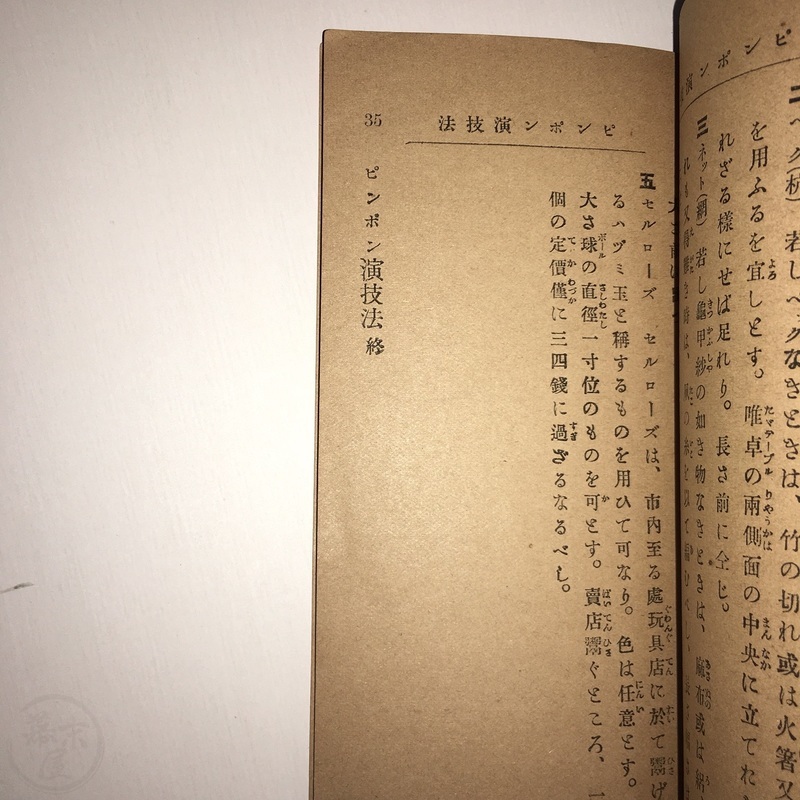 ピンポン演
二 ペグ(杭) 若しペグなきときは、竹の切れ或は火箸又
を用ふるを宜しとす。唯卓の兩側面の中央に立てれ
れざる樣にせば足れり。長さ前に仝じ。
三 ネット(網) 若し龜甲紗の如き物なきときは、麻布或は
ピンポン演技法
五 セルローズ セルローズは、市內至る處玩具店に於て鬻げ
るハヅミ玉と稱するものを用ひて可なり。色は任意とす。
大さ球の直徑一寸位のものを可とす。賣店鬻ぐところ、一
個の定價僅に三四錢に過ざるなるべし。
35
ピンポン演技法 終